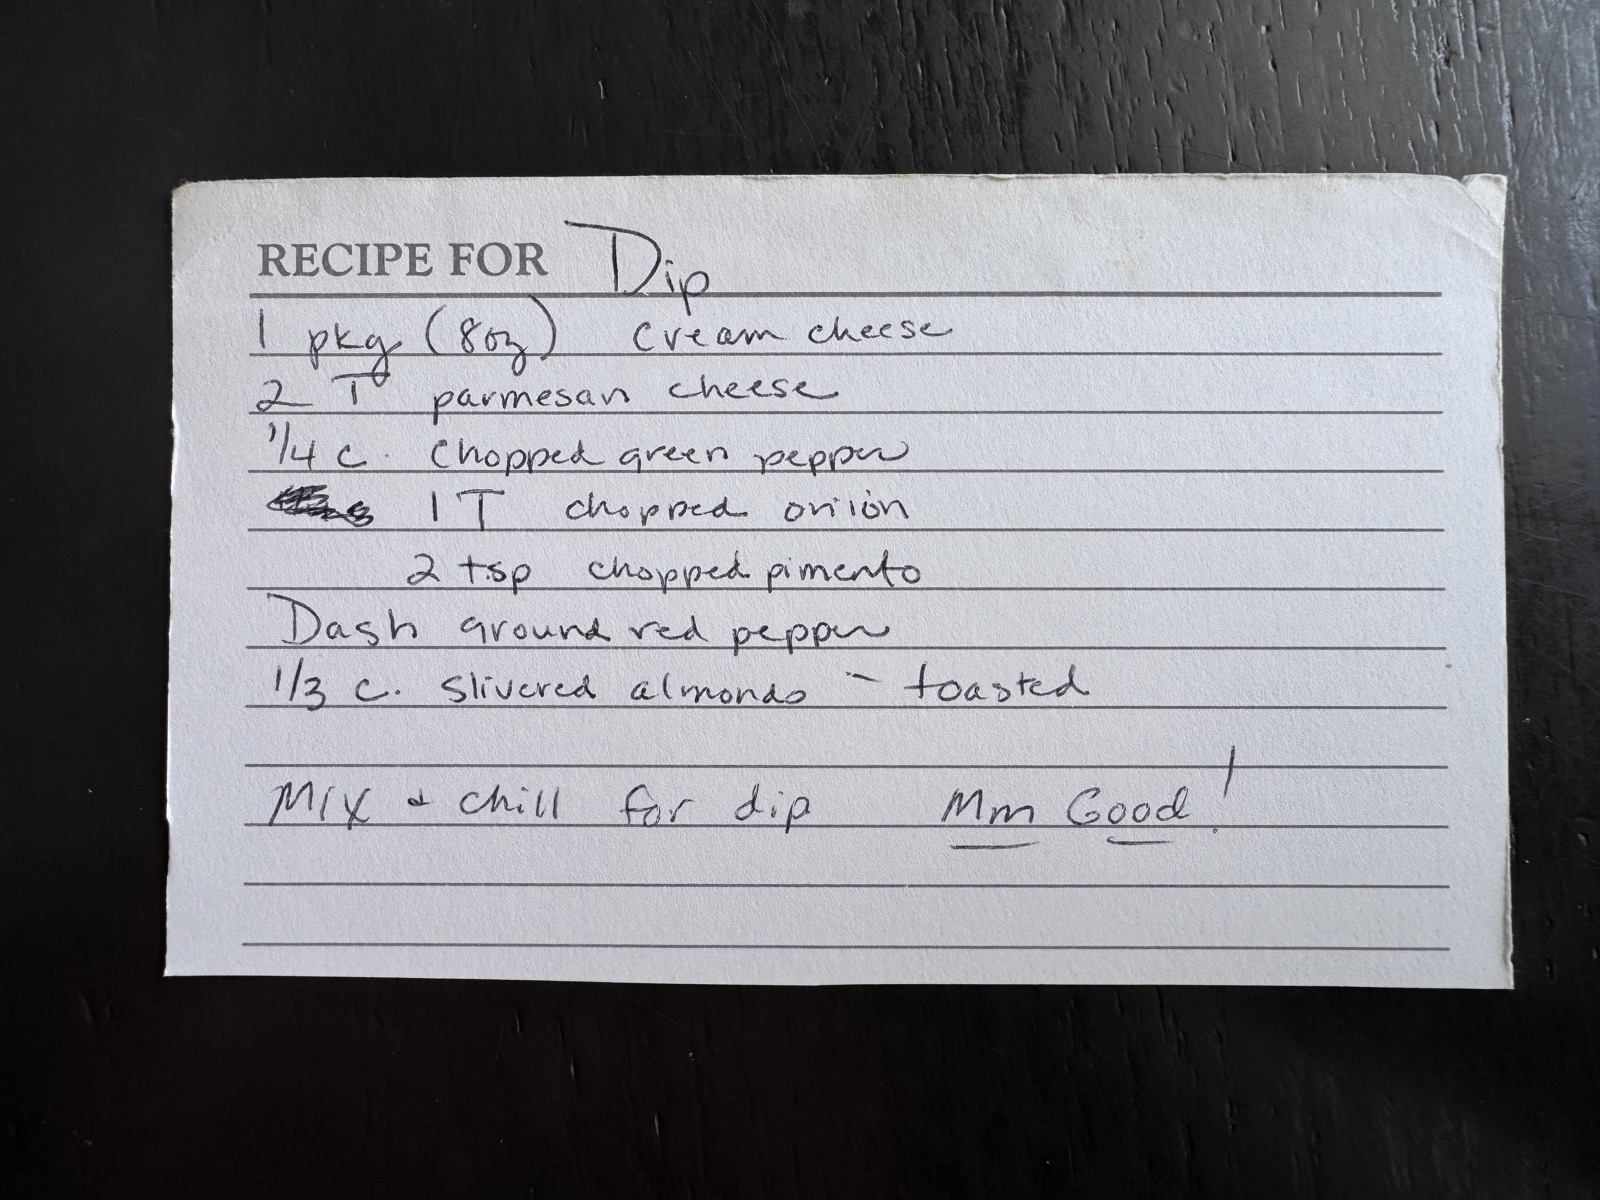 RECIPE FOR Dip
1 pkg (8oz) cream cheese
2 T parmesan cheese
1/4 c. chopped green pepper
1 T chopped onion
2 tsp chopped pimento
Dash ground red pepper
1/3 c. slivered almonds - toasted
Mix & chill for dip Mm Good!